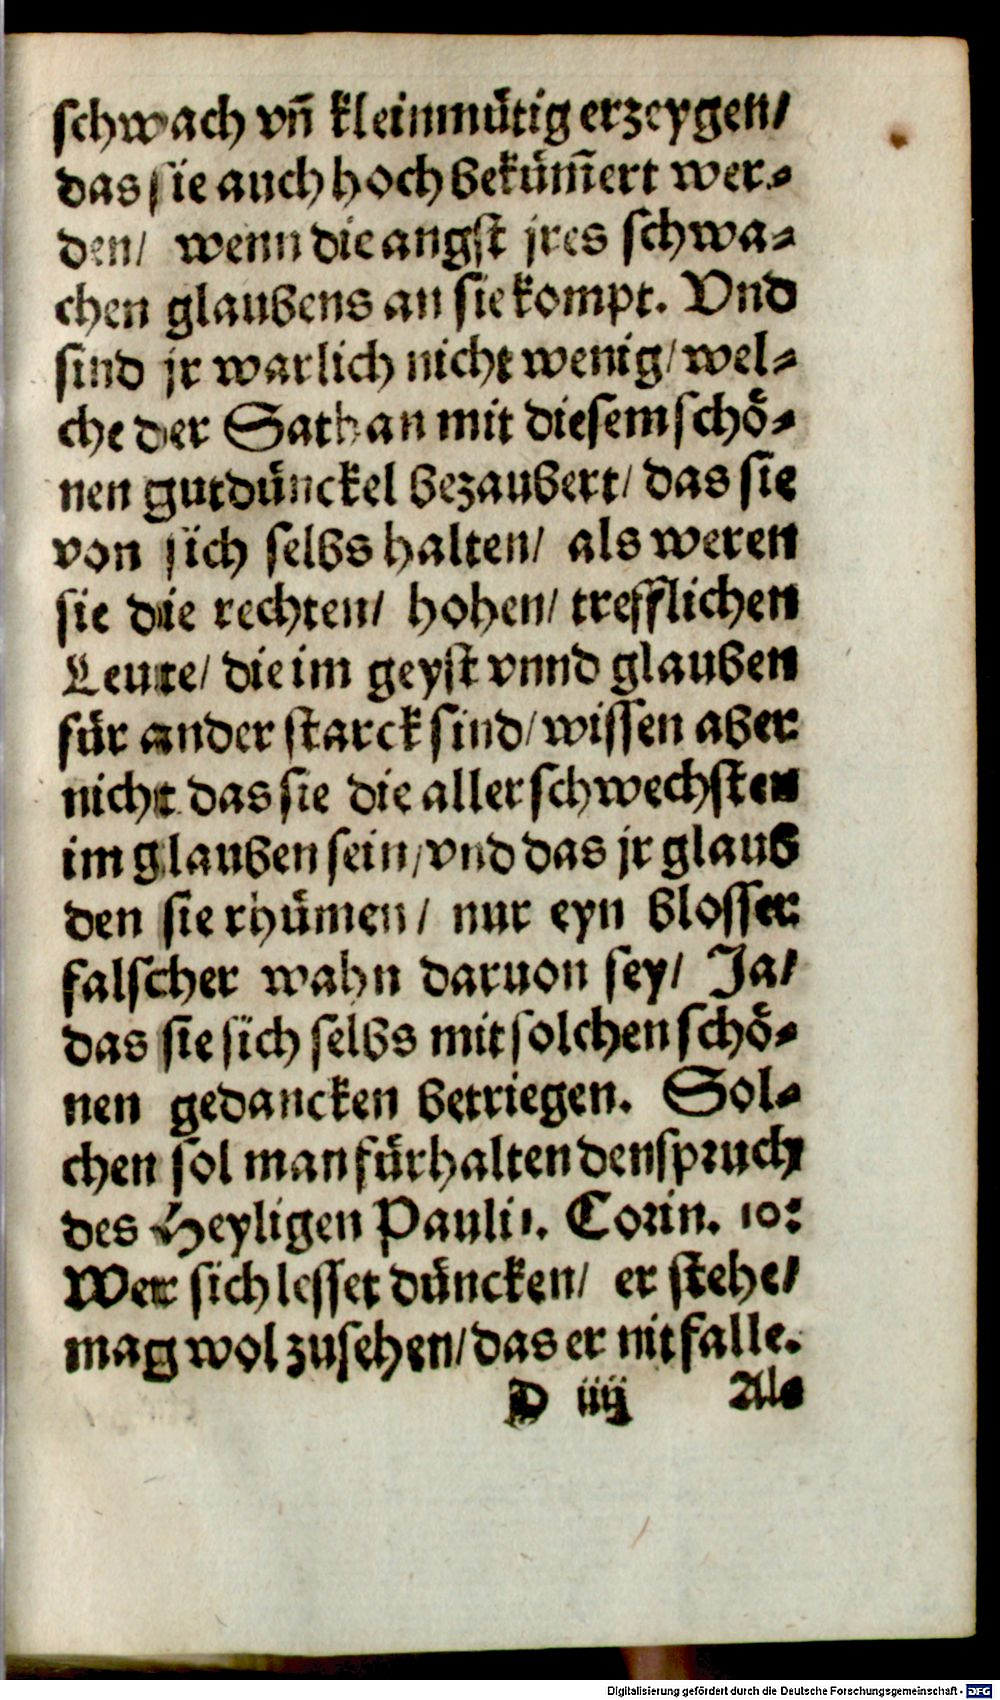 schwach vñ kleinmütig erzeygen/
das sie auch hoch beküm̃ert wer⸗
den/ wenn die angst jres schwa⸗
chen glaubens an sie kompt. Vnd
sind jr warlich nicht wenig/ wel⸗
che der Sathan mit diesem schö⸗
nen gutdünckel bezaubert/ das sie
von sich selbs halten/ als weren
sie die rechten/ hohen/ trefflichen
Leute/ die im geyst vnnd glauben
für ander starck sind/ wissen aber
nicht das sie die aller schwechsten
im glauben sein/ vnd das jr glaub
den sie rhümen/ nur eyn blosser
falscher wahn daruon sey/ Ja/
das sie sich selbs mit solchen schö⸗
nen gedancken betriegen. Sol⸗
chen sol man fürhalten den spruch
des Heyligen Pauli 1. Corin. 10:
Wer sich lesset düncken/ er stehe/
mag wol zusehen/ das er nit falle.
D iiij Als
Digitalisierung gefördert durch die Deutsche Forschungsgemeinschaft - DFG